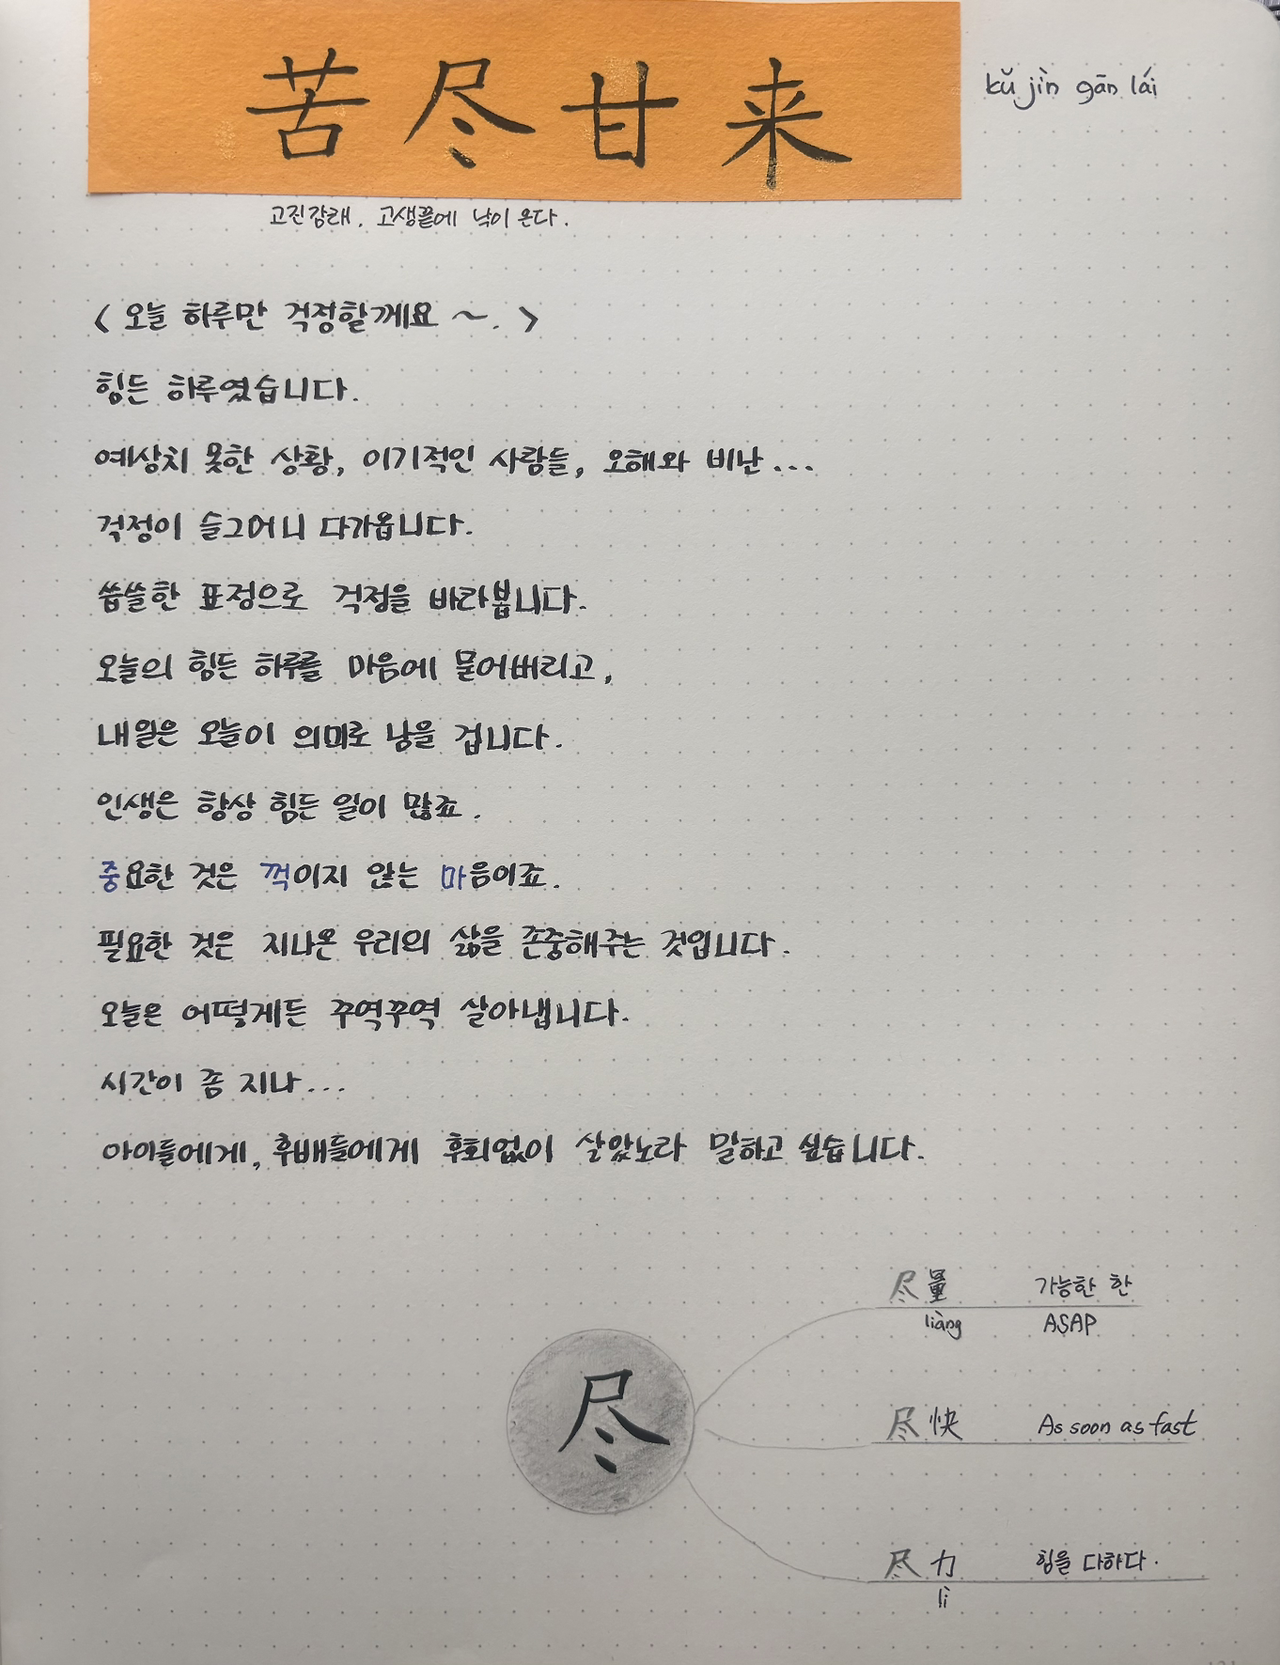 苦尽甘来
kǔ jìn gān lái
고진감래. 고생끝에 낙이 온다.
< 오늘 하루만 걱정할께요 ~. >
힘든 하루였습니다.
예상치 못한 상황, 이기적인 사람들, 오해와 비난...
걱정이 슬그머니 다가옵니다.
씁쓸한 표정으로 걱정을 바라봅니다.
오늘의 힘든 하루를 마음에 묻어버리고,
내일은 오늘이 의미로 남을 겁니다.
인생은 항상 힘든 일이 많죠.
중요한 것은 꺽이지 않는 마음이죠.
필요한 것은 지나온 우리의 삶을 존중해주는 것입니다.
오늘은 어떻게든 꾸역꾸역 살아냅니다.
시간이 좀 지나...
아이들에게, 후배들에게 후회없이 살았노라 말하고 싶습니다.
尽
尽量 가능한 한
liàng ASAP
尽快 As soon as fast
尽力 힘을 다하다.
lì